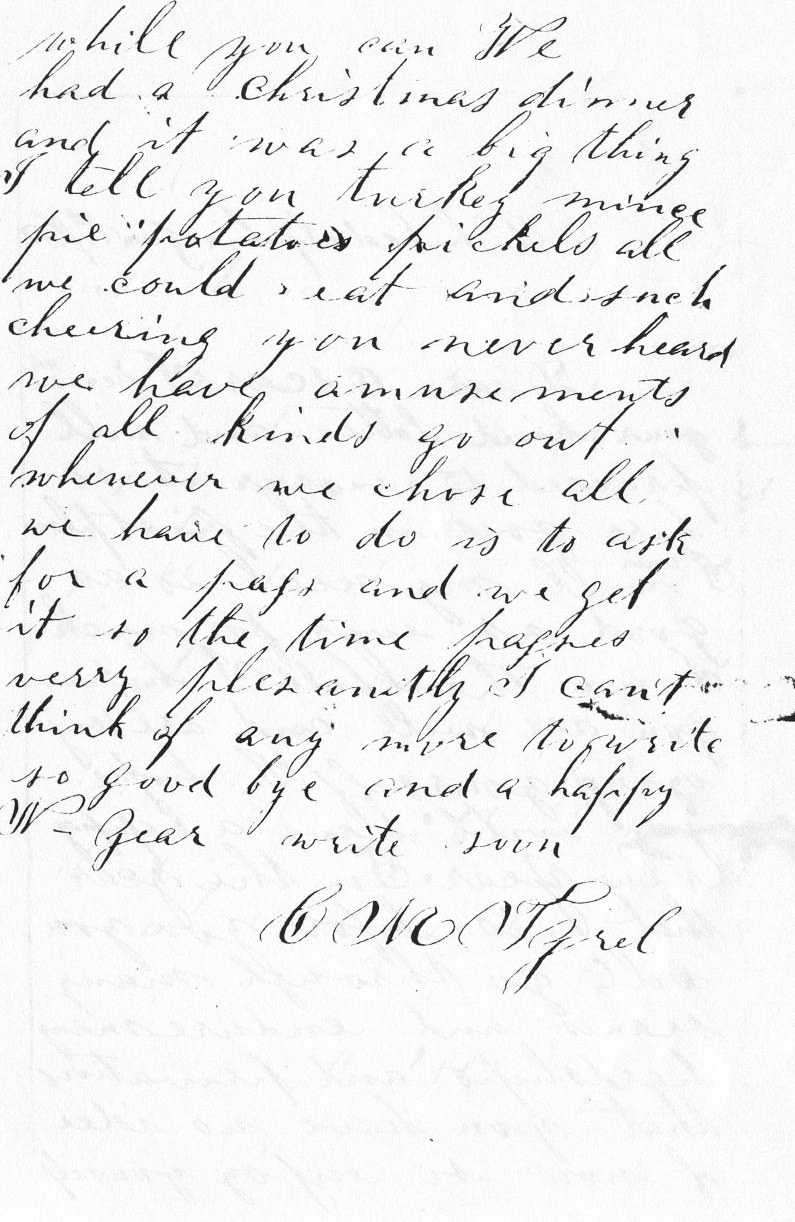 while you can We
had a christmas dinner
and it was a big thing
I tell you turkey mince
pie potatoes pickels all
we could eat and such
cheering you never heard
we have amusements
of all kinds go out
whenever we chose all
we have to do is to ask
for a pass and we get
it so the time passes
verry plesantly I cant
think of any more to write
so good bye and a happy
N Year write soon
C M Tyrel